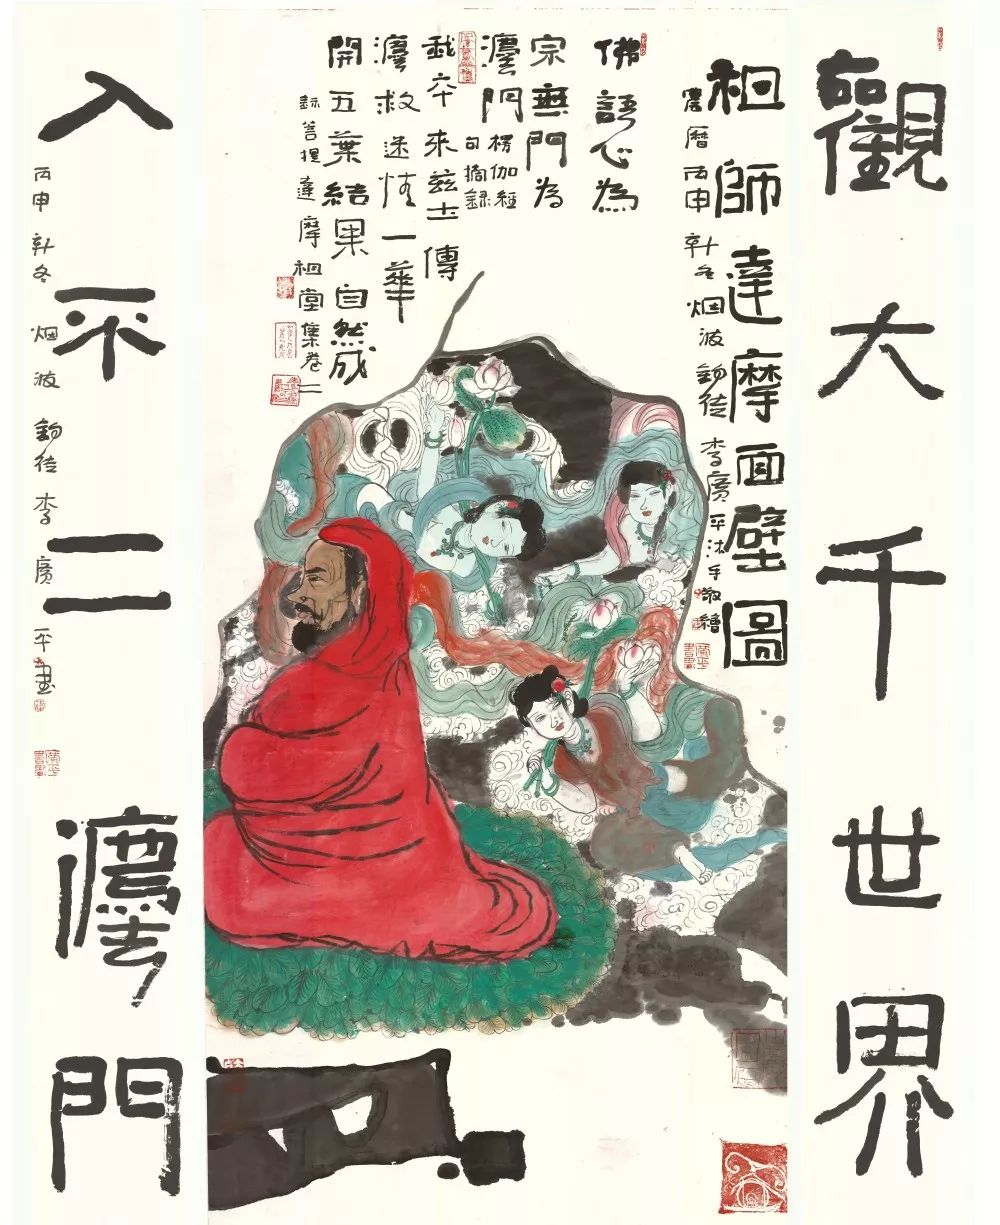 觀大千世界
祖師達摩面壁圖
農曆丙申初冬烟波釣徒李廣平沐手敬繪
佛語心為
宗無門為
灋門
楞伽經
句摘錄
我本來茲土傳
灋救迷情一華
開五葉結果自然成
錄菩提達摩祖堂集卷二
入不二灋門
丙申初冬烟波釣徒李廣平畫